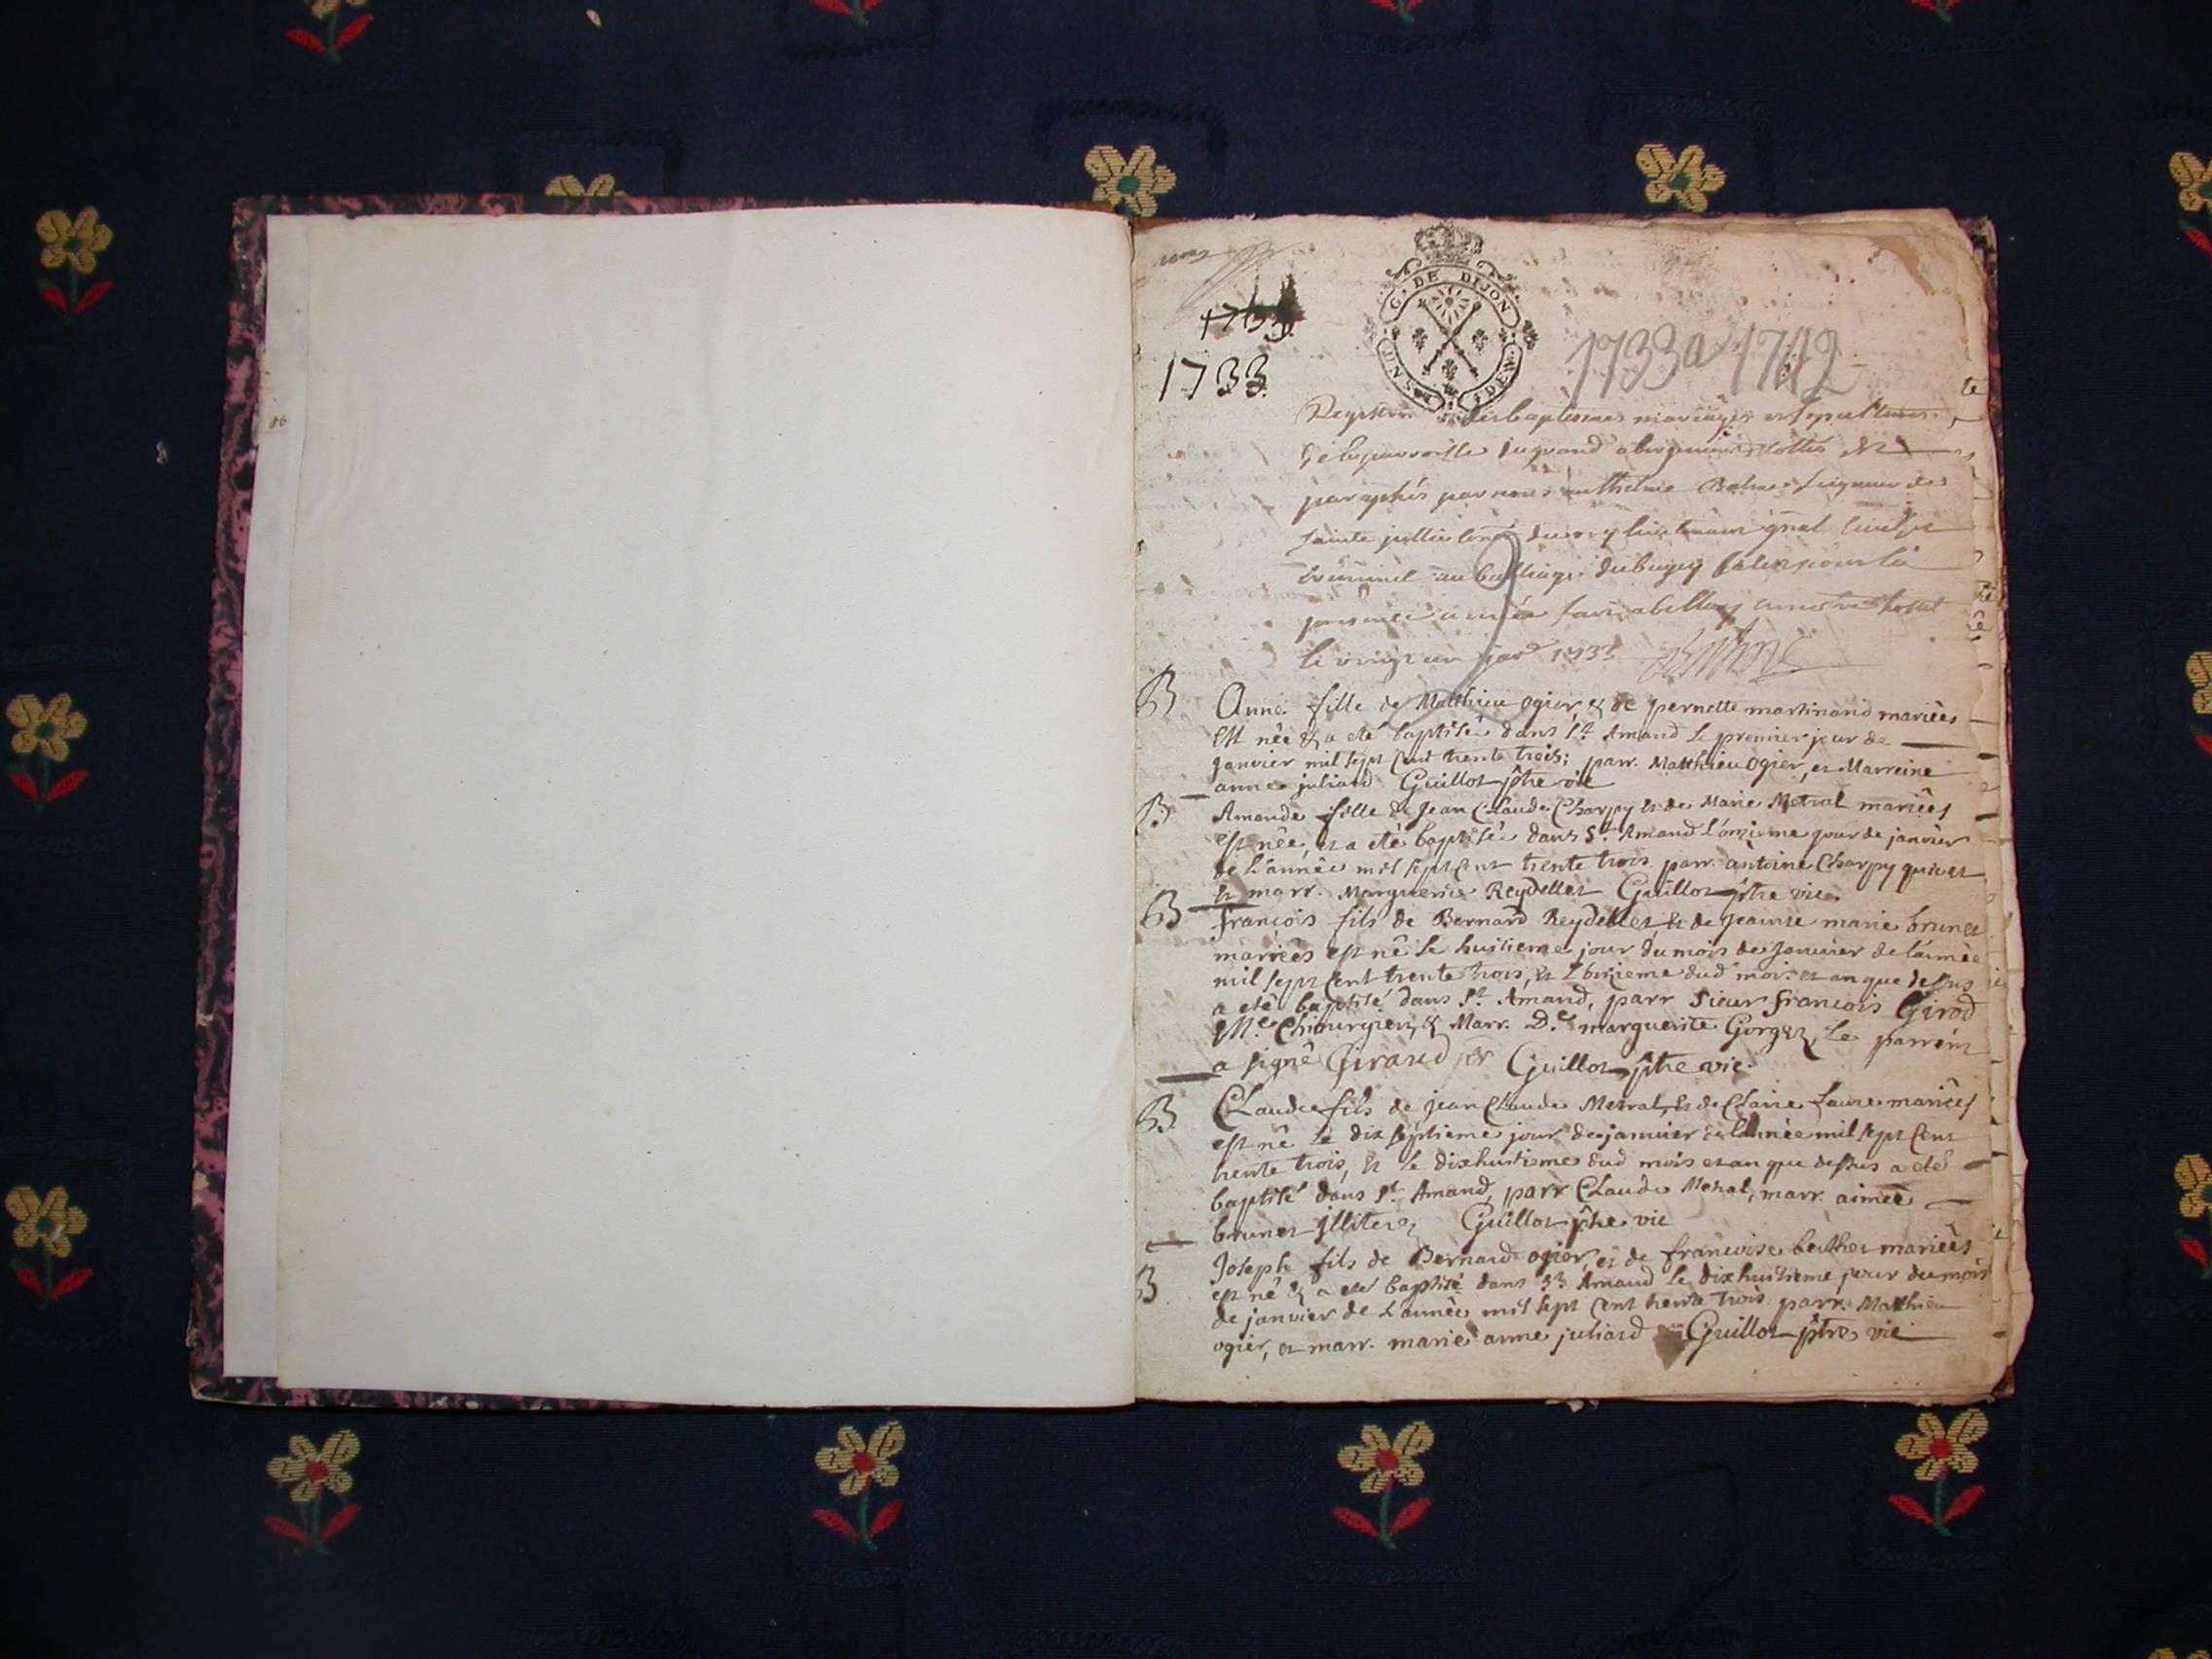 1733
1733
G. DE DIJON
UN S. 4 DEN.
1733 a 1742
Registre des baptesmes mariages et sepultures
de la parroisse du grand abergement cottés et
paraphés par nous anthelme Balme seigneur de
sainte jullie du roy lieutenant gnal civil et
criminel au bailliage du bugey pour la
presente année fait a belley
le vingt un 1733
B Anne fille de Matthieu ogier, & de pernette martinand mariés
est née & a eté baptisée dans St Amand le premier jour de
janvier mil sept cent trente trois; parr. Matthieu ogier, et Marreine
anne juliard Guillot ptre vic
B Amande fille de Jean Claude Charpy et de Marie Metral mariés
est née, et a eté baptisée dans St Amand l'onzieme jour de janvier
de l'année mil sept cent trente trois parr. antoine Charpy
et marr. Marguerite Reydellet Guillot ptre vic
B françois fils de Bernard Reydellet, et de jeanne marie brunet
mariés est né le huitieme jour du mois de janvier de l'année
mil sept cent trente trois, et l'onzieme dud mois et an que dessus
a eté baptisé dans St Amand, parr sieur françois Girod
Me Chirurgien, & Marr. De marguerite Gorgez, le parrein
a signé Giraud Guillot ptre vic.
B Claude fils de jean Claude Metral, et de Claire faure mariés
est né le dix septieme jour de janvier de l'année mil sept cent
trente trois, et le dixhuitieme dud mois et an que dessus a eté
baptisé dans St Amand, parr Claude Metral, marr. aimée
brunet Guillot ptre vic
B Joseph fils de Bernard ogier, et de francoise berthet mariés
est né & a eté baptisé dans St Amand le dixhuitieme jour du mois
de janvier de l'année mil sept cent trente trois parr. Matthieu
ogier, et marr. marie anne juliard Guillot ptre vic